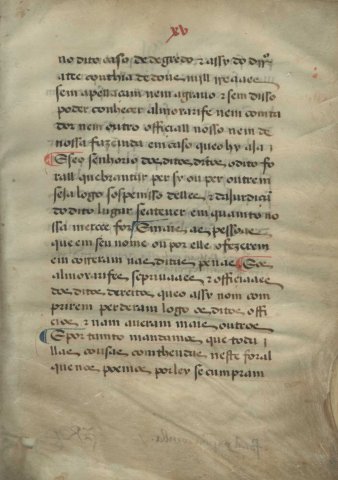 xv
no dito caso de degredo ⁊ assy do dirto
atte conthia de dous mill reaaes
sem apellacam nem agrauo ⁊ sem disso
poder conhecer almoxarife nem conta
dor nem outro officiall nosso nem de
nossa fazenda em caso queo hy aja
E seo senhorio dos ditos dtos o dito fo
rall quebrantar per sy ou per outrem
seja logo sospensso delles ⁊ da jurdiçã
do dito lugar se a teuer em quanto no
ssa merce for E mais as pessoas
que em seu nome ou por elle o fezerem
em correram nas ditas penas E os
almoxarifes scpriuaaes ⁊ officiaaes
dos ditos dereitos que o assy nom com
prirem perderam logo os ditos offi
cios ⁊ nam aueram mais outros
E por tanto mandamos que todas
as cousas contheudas neste foral
que nos poemos por ley se cumpram